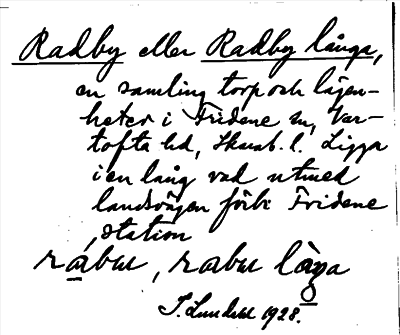 Radby eller Radby långa,
en samling torp och lägen-
heter i Fridene sn, Var-
tofta hd, Skarab. l. Ligga
i en lång rad utmed
landsvägen förbi Fridene
station
rábu, rabu làŋa
S. Lundell 1928.